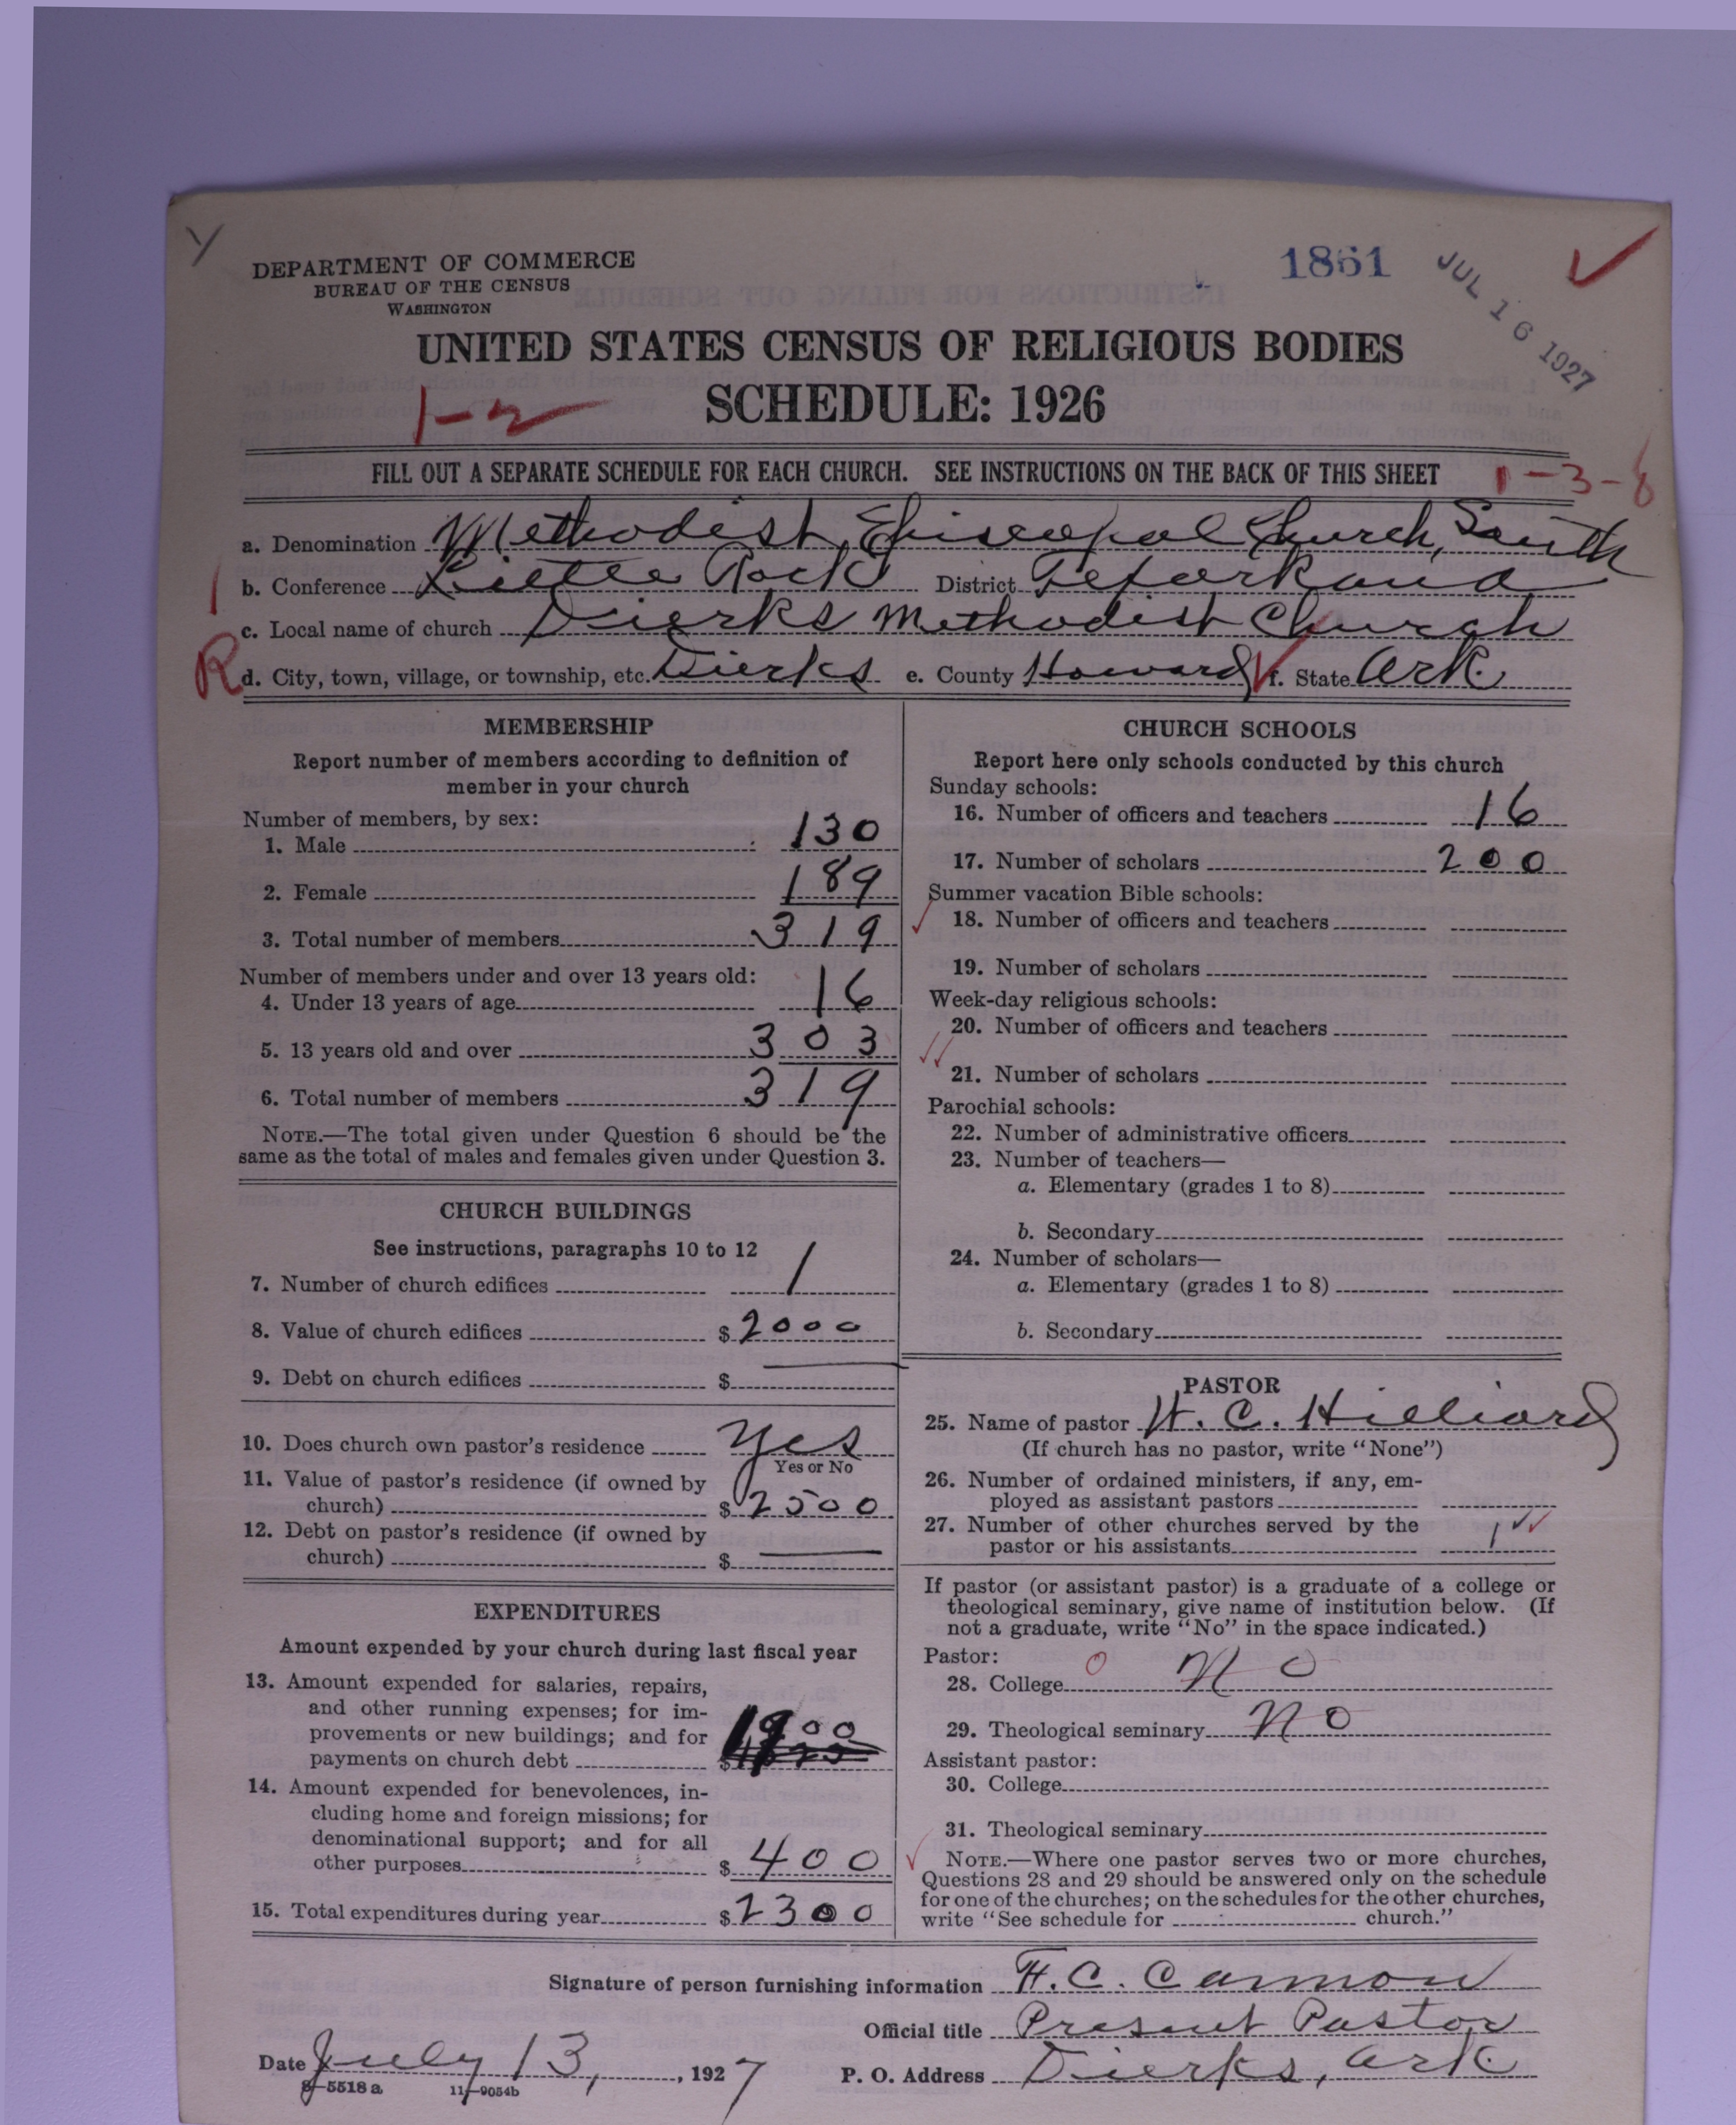 DEPARTMENT OF COMMERCE
BUREAU OF THE CENSUS
WASHINGTON
1861
JUL 16 1927
UNITED STATES CENSUS OF RELIGIOUS BODIES
SCHEDULE: 1926
1-2
FILL OUT A SEPARATE SCHEDULE FOR EACH CHURCH. SEE INSTRUCTIONS ON THE BACK OF THIS SHEET
1-3-8
a. Denomination Methodist Episcopal Church, South
b. Conference Little Rock District Texarkana
c. Local name of church Dierks Methodist Church
R d. City, town, village, or township, etc. Dierks e. County Howard f. State Ark.
MEMBERSHIP
Report number of members according to definition of
member in your church
Number of members, by sex:
1. Male 130
2. Female 189
3. Total number of members 319
Number of members under and over 13 years old:
4. Under 13 years of age 16
5. 13 years old and over 303
6. Total number of members 319
NOTE.—The total given under Question 6 should be the
same as the total of males and females given under Question 3.
CHURCH BUILDINGS
See instructions, paragraphs 10 to 12
7. Number of church edifices 1
8. Value of church edifices $2000
9. Debt on church edifices $
10. Does church own pastor's residence Yes
Yes or No
11. Value of pastor's residence (if owned by
church) $2500
12. Debt on pastor's residence (if owned by
church) $
EXPENDITURES
Amount expended by your church during last fiscal year
13. Amount expended for salaries, repairs,
and other running expenses; for im-
provements or new buildings; and for
payments on church debt $1900
14. Amount expended for benevolences, in-
cluding home and foreign missions; for
denominational support; and for all
other purposes $400
15. Total expenditures during year $2300
CHURCH SCHOOLS
Report here only schools conducted by this church
Sunday schools:
16. Number of officers and teachers 16
17. Number of scholars 200
Summer vacation Bible schools:
18. Number of officers and teachers
19. Number of scholars
Week-day religious schools:
20. Number of officers and teachers
21. Number of scholars
Parochial schools:
22. Number of administrative officers
23. Number of teachers—
a. Elementary (grades 1 to 8)
b. Secondary
24. Number of scholars—
a. Elementary (grades 1 to 8)
b. Secondary
PASTOR
25. Name of pastor W. C. Hilliard
(If church has no pastor, write "None")
26. Number of ordained ministers, if any, em-
ployed as assistant pastors
27. Number of other churches served by the
pastor or his assistants 1
If pastor (or assistant pastor) is a graduate of a college or
theological seminary, give name of institution below. (If
not a graduate, write "No" in the space indicated.)
Pastor: 0
28. College No
29. Theological seminary No
Assistant pastor:
30. College
31. Theological seminary
NOTE.—Where one pastor serves two or more churches,
Questions 28 and 29 should be answered only on the schedule
for one of the churches; on the schedules for the other churches,
write "See schedule for church."
Signature of person furnishing information F. C. Cannon
Official title Present Pastor
Date July 13, 1927 P. O. Address Dierks, Ark
8—5518 a 11—9054b